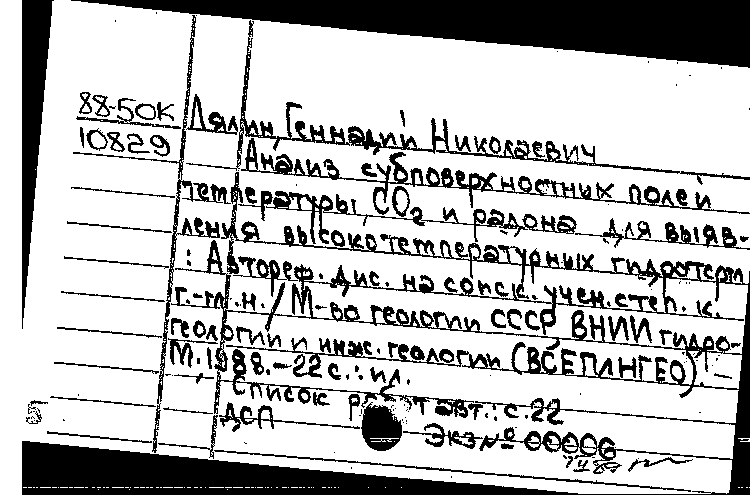 88-50К
10829
Лялин, Геннадий Николаевич
Анализ субповерхностных полей
температуры, CO2 и радона для выяв-
ления высокотемпературных гидротерм
: Автореф. дис. на соиск. учен. степ. к.
г.-м.н. / М-во геологии СССР, ВНИИ гидро-
геологии и инж. геологии (ВСЕГИНГЕО). -
М., 1988. - 22 с. : ил.
Список работ авт.: с. 22
ДСП
Экз № 00006